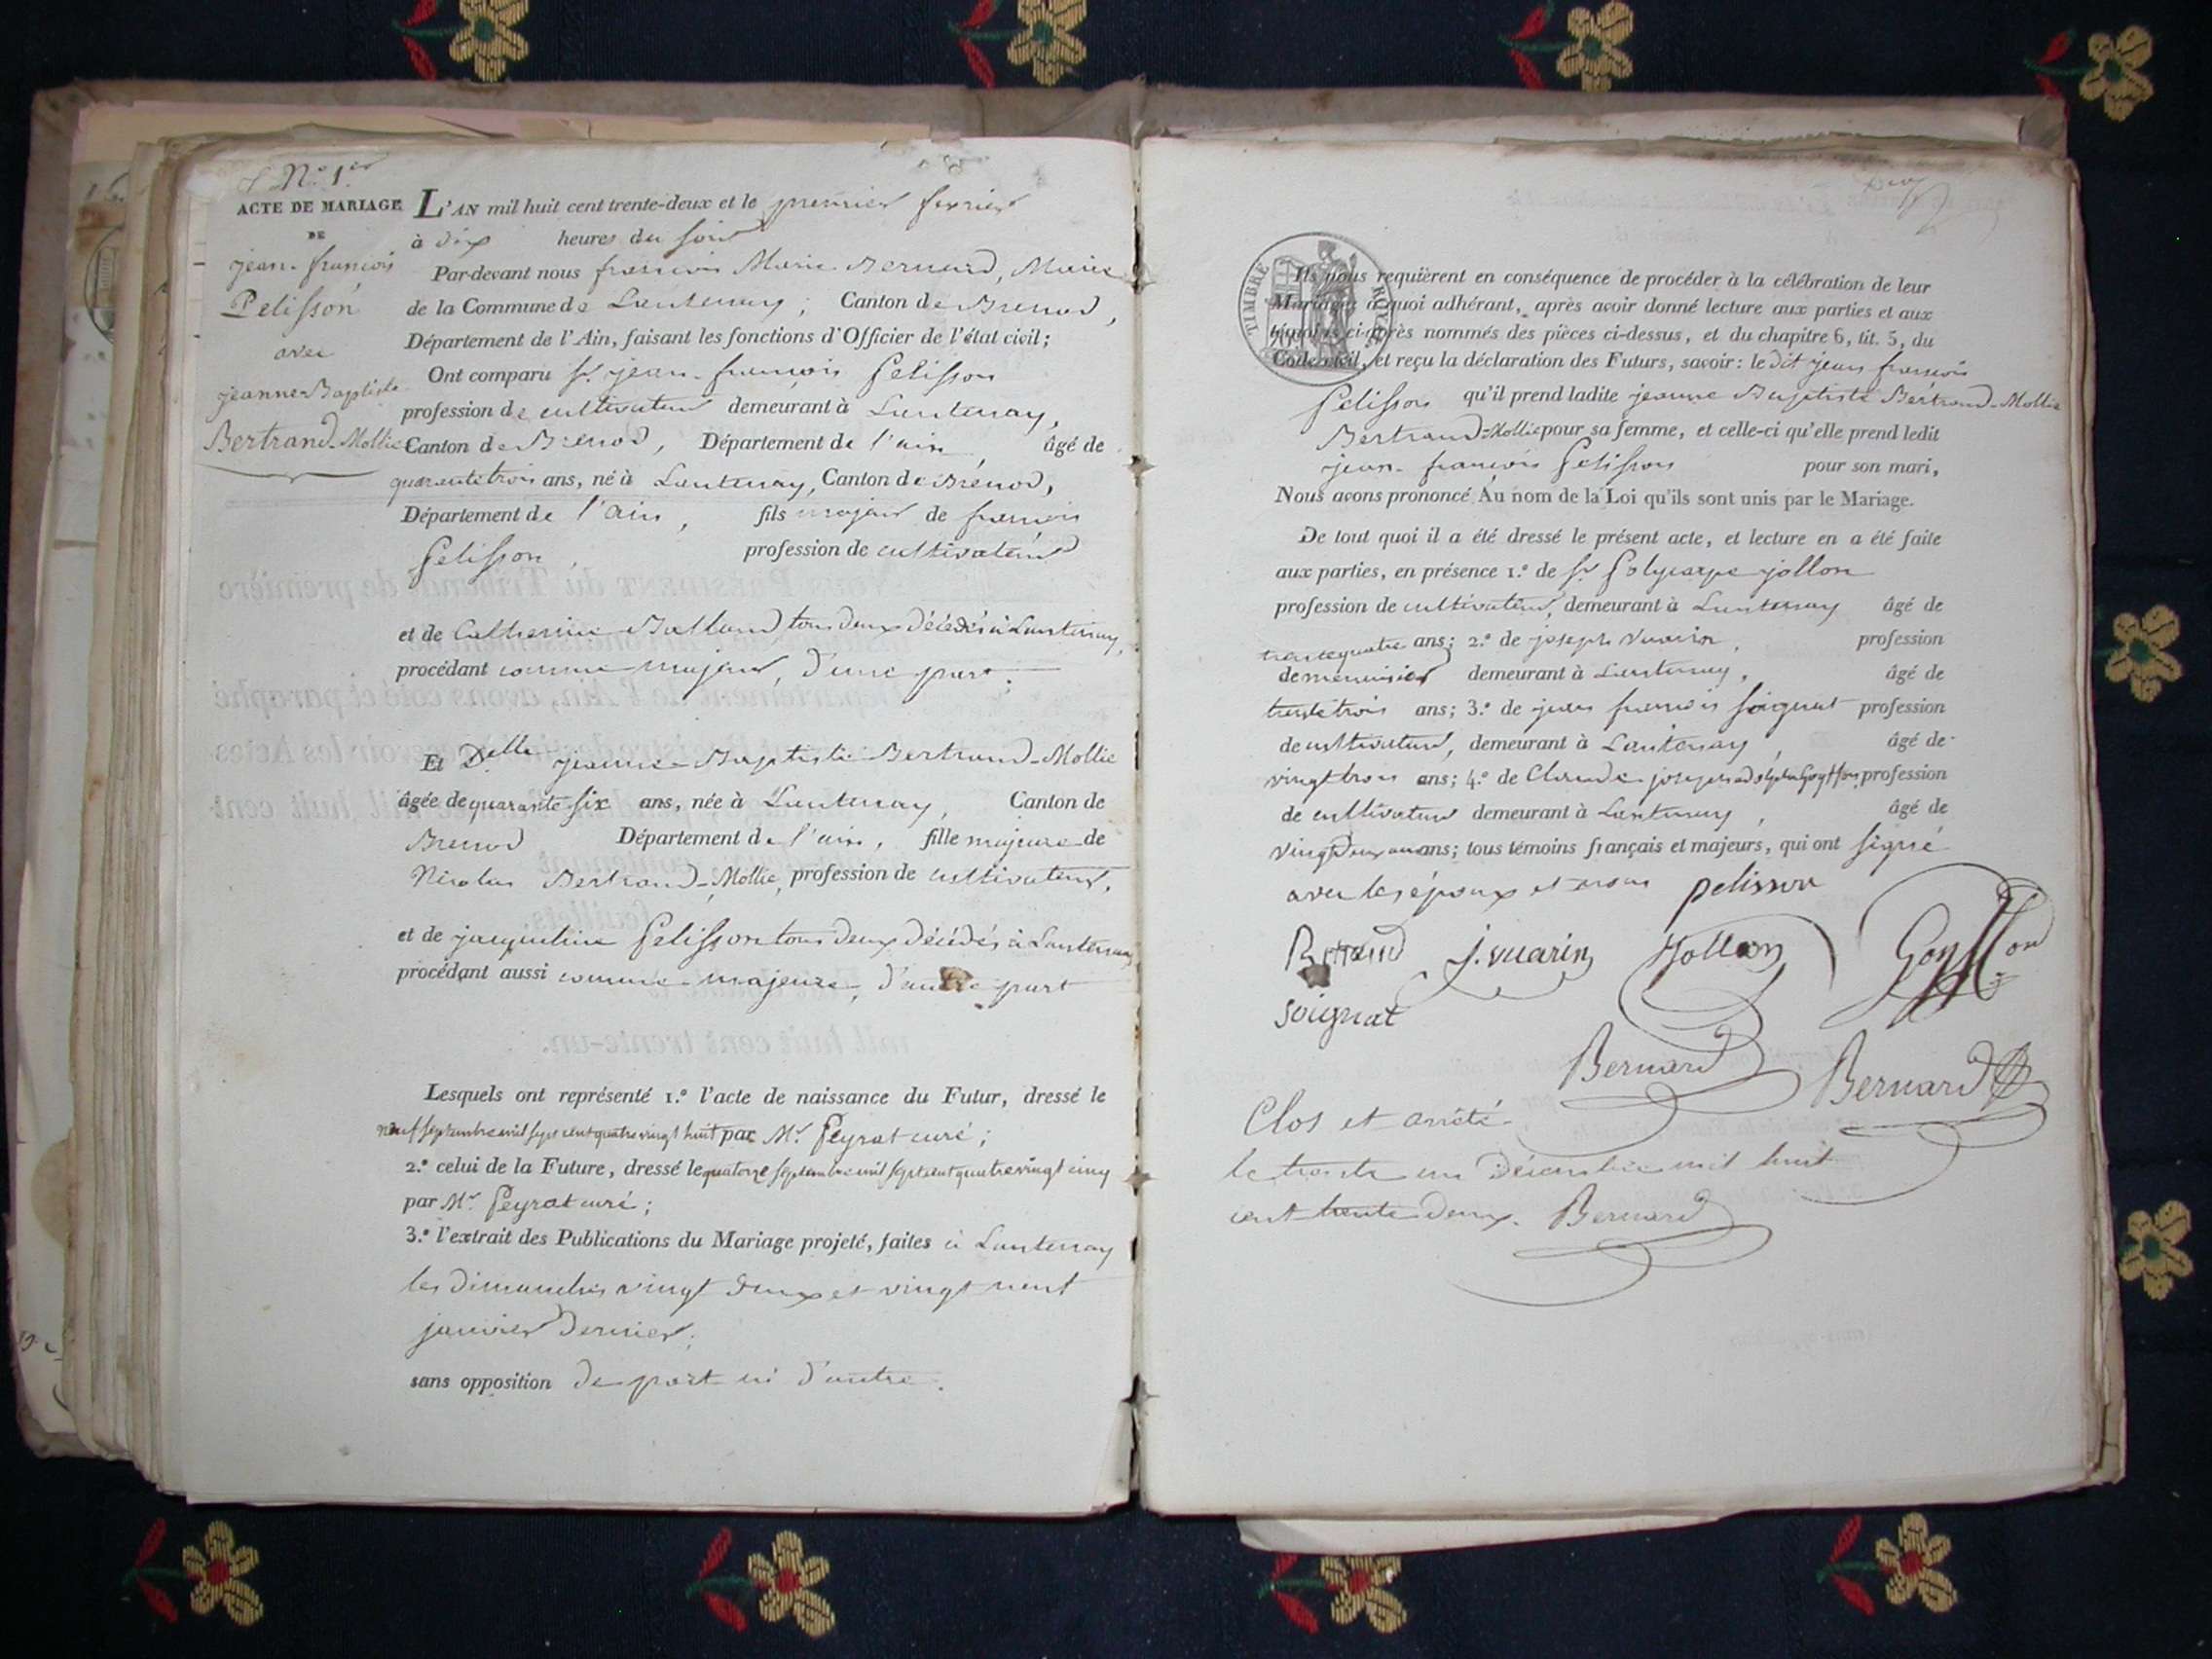 N.º 1.er
ACTE DE MARIAGE
DE
jean-françois
Pelisson
avec
jeanne-Baptiste
Bertrand-Mollie
L'AN mil huit cent trente-deux et le premier fevrier
à dix heures du soir
Par-devant nous françois Marie Bernard, Maire
de la Commune de Lantenay, Canton de Brenod,
Département de l'Ain, faisant les fonctions d'Officier de l'état civil;
Ont comparu Sr. jean-françois Pelisson
profession de cultivateur demeurant à Lantenay,
Canton de Brenod, Département de l'ain âgé de
quarante trois ans, né à Lantenay, Canton de Brénod,
Département de l'Ain, fils majeur de françois
Pelisson, profession de cultivateur
et de Catherine Balland tous deux décédés à Lantenay,
procédant comme majeur, d'une part;
Et Delle jeanne-Baptiste Bertrand-Mollie
âgée de quarante six ans, née à Lantenay, Canton de
Brenod Département de l'ain, fille majeure de
Nicolas Bertrand-Mollie, profession de cultivateur,
et de jacqueline Pelisson tous deux décédés à Lantenay
procédant aussi comme majeure, d'autre part
Lesquels ont représenté 1.º l'acte de naissance du Futur, dressé le
neuf septembre mil sept cent quatre vingt huit par Mr. Peyrat curé;
2.º celui de la Future, dressé le quatorze septembre mil sept cent quatre vingt cinq
par Mr. Peyrat curé;
3.º l'extrait des Publications du Mariage projeté, faites à Lantenay
les dimanches vingt deux et vingt neuf
janvier dernier;
sans opposition de part ni d'autre.
TIMBRE ROYAL
Ils nous requièrent en conséquence de procéder à la célébration de leur
Mariage, à quoi adhérant, après avoir donné lecture aux parties et aux
témoins ci-après nommés des pièces ci-dessus, et du chapitre 6, tit. 5, du
Code civil, et reçu la déclaration des Futurs, savoir: le dit jean françois
Pelisson qu'il prend ladite jeanne Baptiste Bertrand-Mollie
Bertrand-Mollie pour sa femme, et celle-ci qu'elle prend ledit
jean-françois Pelisson pour son mari,
Nous avons prononcé Au nom de la Loi qu'ils sont unis par le Mariage.
De tout quoi il a été dressé le présent acte, et lecture en a été faite
aux parties, en présence 1.º de Sr. Polycarpe jollon
profession de cultivateur, demeurant à Lantenay âgé de
trente quatre ans; 2.º de joseph Vuarin, profession
de menuisier demeurant à Lantenay, âgé de
trente trois ans; 3.º de jean françois soignat profession
de cultivateur, demeurant à Lantenay, âgé de
vingt trois ans; 4.º de Claude joseph Goyffon, profession
de cultivateur demeurant à Lantenay, âgé de
vingt deux ans; tous témoins français et majeurs, qui ont signé
avec les époux et nous pelisson
Bertrand j. vuarin Jollon Goyffon
soignat
Bernard Bernard
Clos et arrêté
le trente un Décembre mil huit
cent trente deux. Bernard